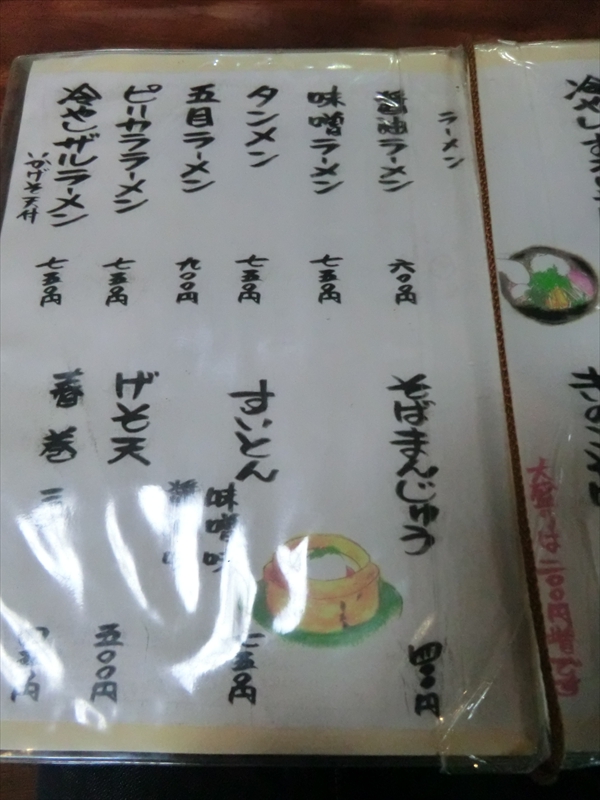 冷やし
きのこそば
大盛りは二〇〇円増です
ラーメン
醤油ラーメン 六〇〇円
味噌ラーメン 七五〇円
タンメン 七五〇円
五目ラーメン 九〇〇円
ピリカララーメン 七五〇円
冷やしザルラーメン 七五〇円
いかげそ天付
そばまんじゅう 四〇〇円
すいとん 七五〇円
味噌味
醤油味
げそ天 五〇〇円
春巻 三